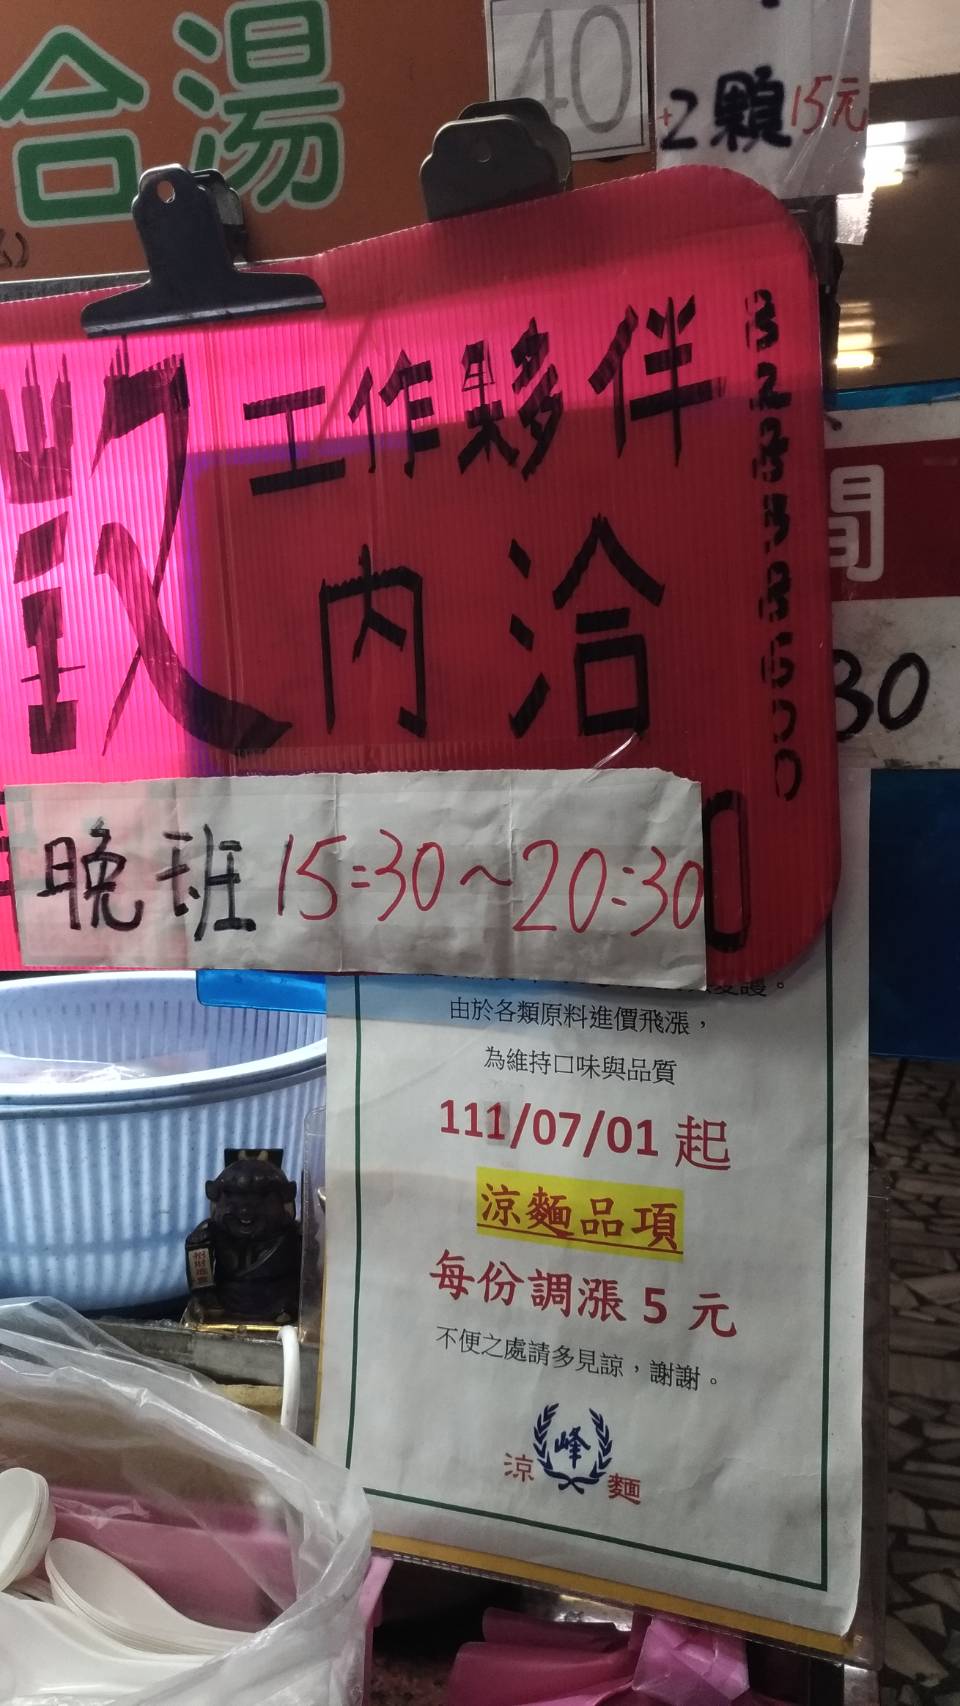 合湯
40
+2顆15元
徵 工作夥伴
內洽
間
30
晚班 15:30~20:30
由於各類原料進價飛漲，
為維持口味與品質
111/07/01 起
涼麵品項
每份調漲 5 元
不便之處請多見諒，謝謝。
峰
涼 麵
招財進寶